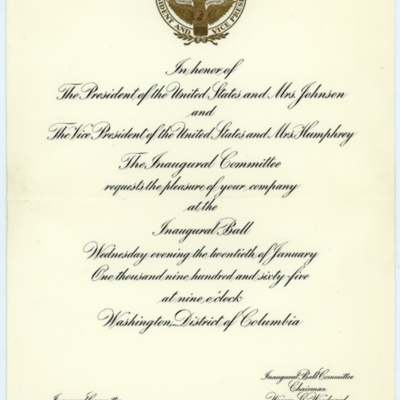 PRESIDENT AND VICE PRES
In honor of
The President of the United States and Mrs. Johnson
and
The Vice President of the United States and Mrs. Humphrey
The Inaugural Committee
requests the pleasure of your company
at the
Inaugural Ball
Wednesday evening the twentieth of January
One thousand nine hundred and sixty-five
at nine o'clock
Washington, District of Columbia
Inaugural Ball Committee
Chairman
Committee